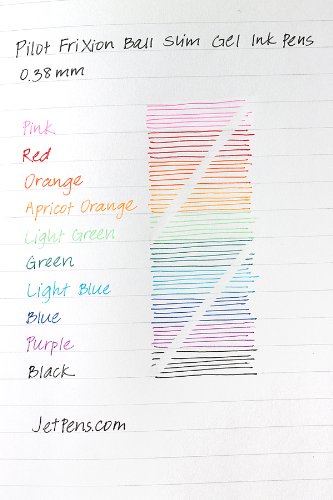 Pilot FriXion Ball Slim Gel Ink Pens
0.38mm
Pink
Red
Orange
Apricot Orange
Light Green
Green
Light Blue
Blue
Purple
Black
JetPens.com